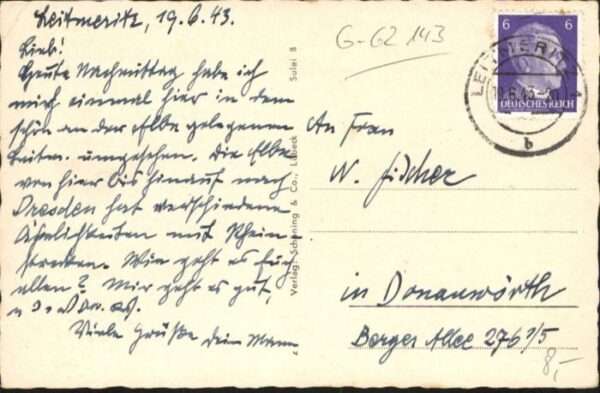 Leitmeritz, 19.6.43.
Lieb!
Heute Nachmittag habe ich
mich einmal hier in dem
schön an der Elbe gelegenen
Leitm. umgesehen. Die Elbe
von hier bis hinauf nach
Dresden hat verschiedene
Ähnlichkeiten mit Rhein-
strecken. Wie geht es Euch
allen? Mir geht es gut,
Viele Grüße Dein Mann
G-G2 143
Sulei 8
Verlag: Schöning & Co., Lübeck
6 6
DEUTSCHES REICH
LEITMERITZ 1
b
An Frau
N. Fischer
in Donauwörth
Berger Allee 276 1/5
8,-